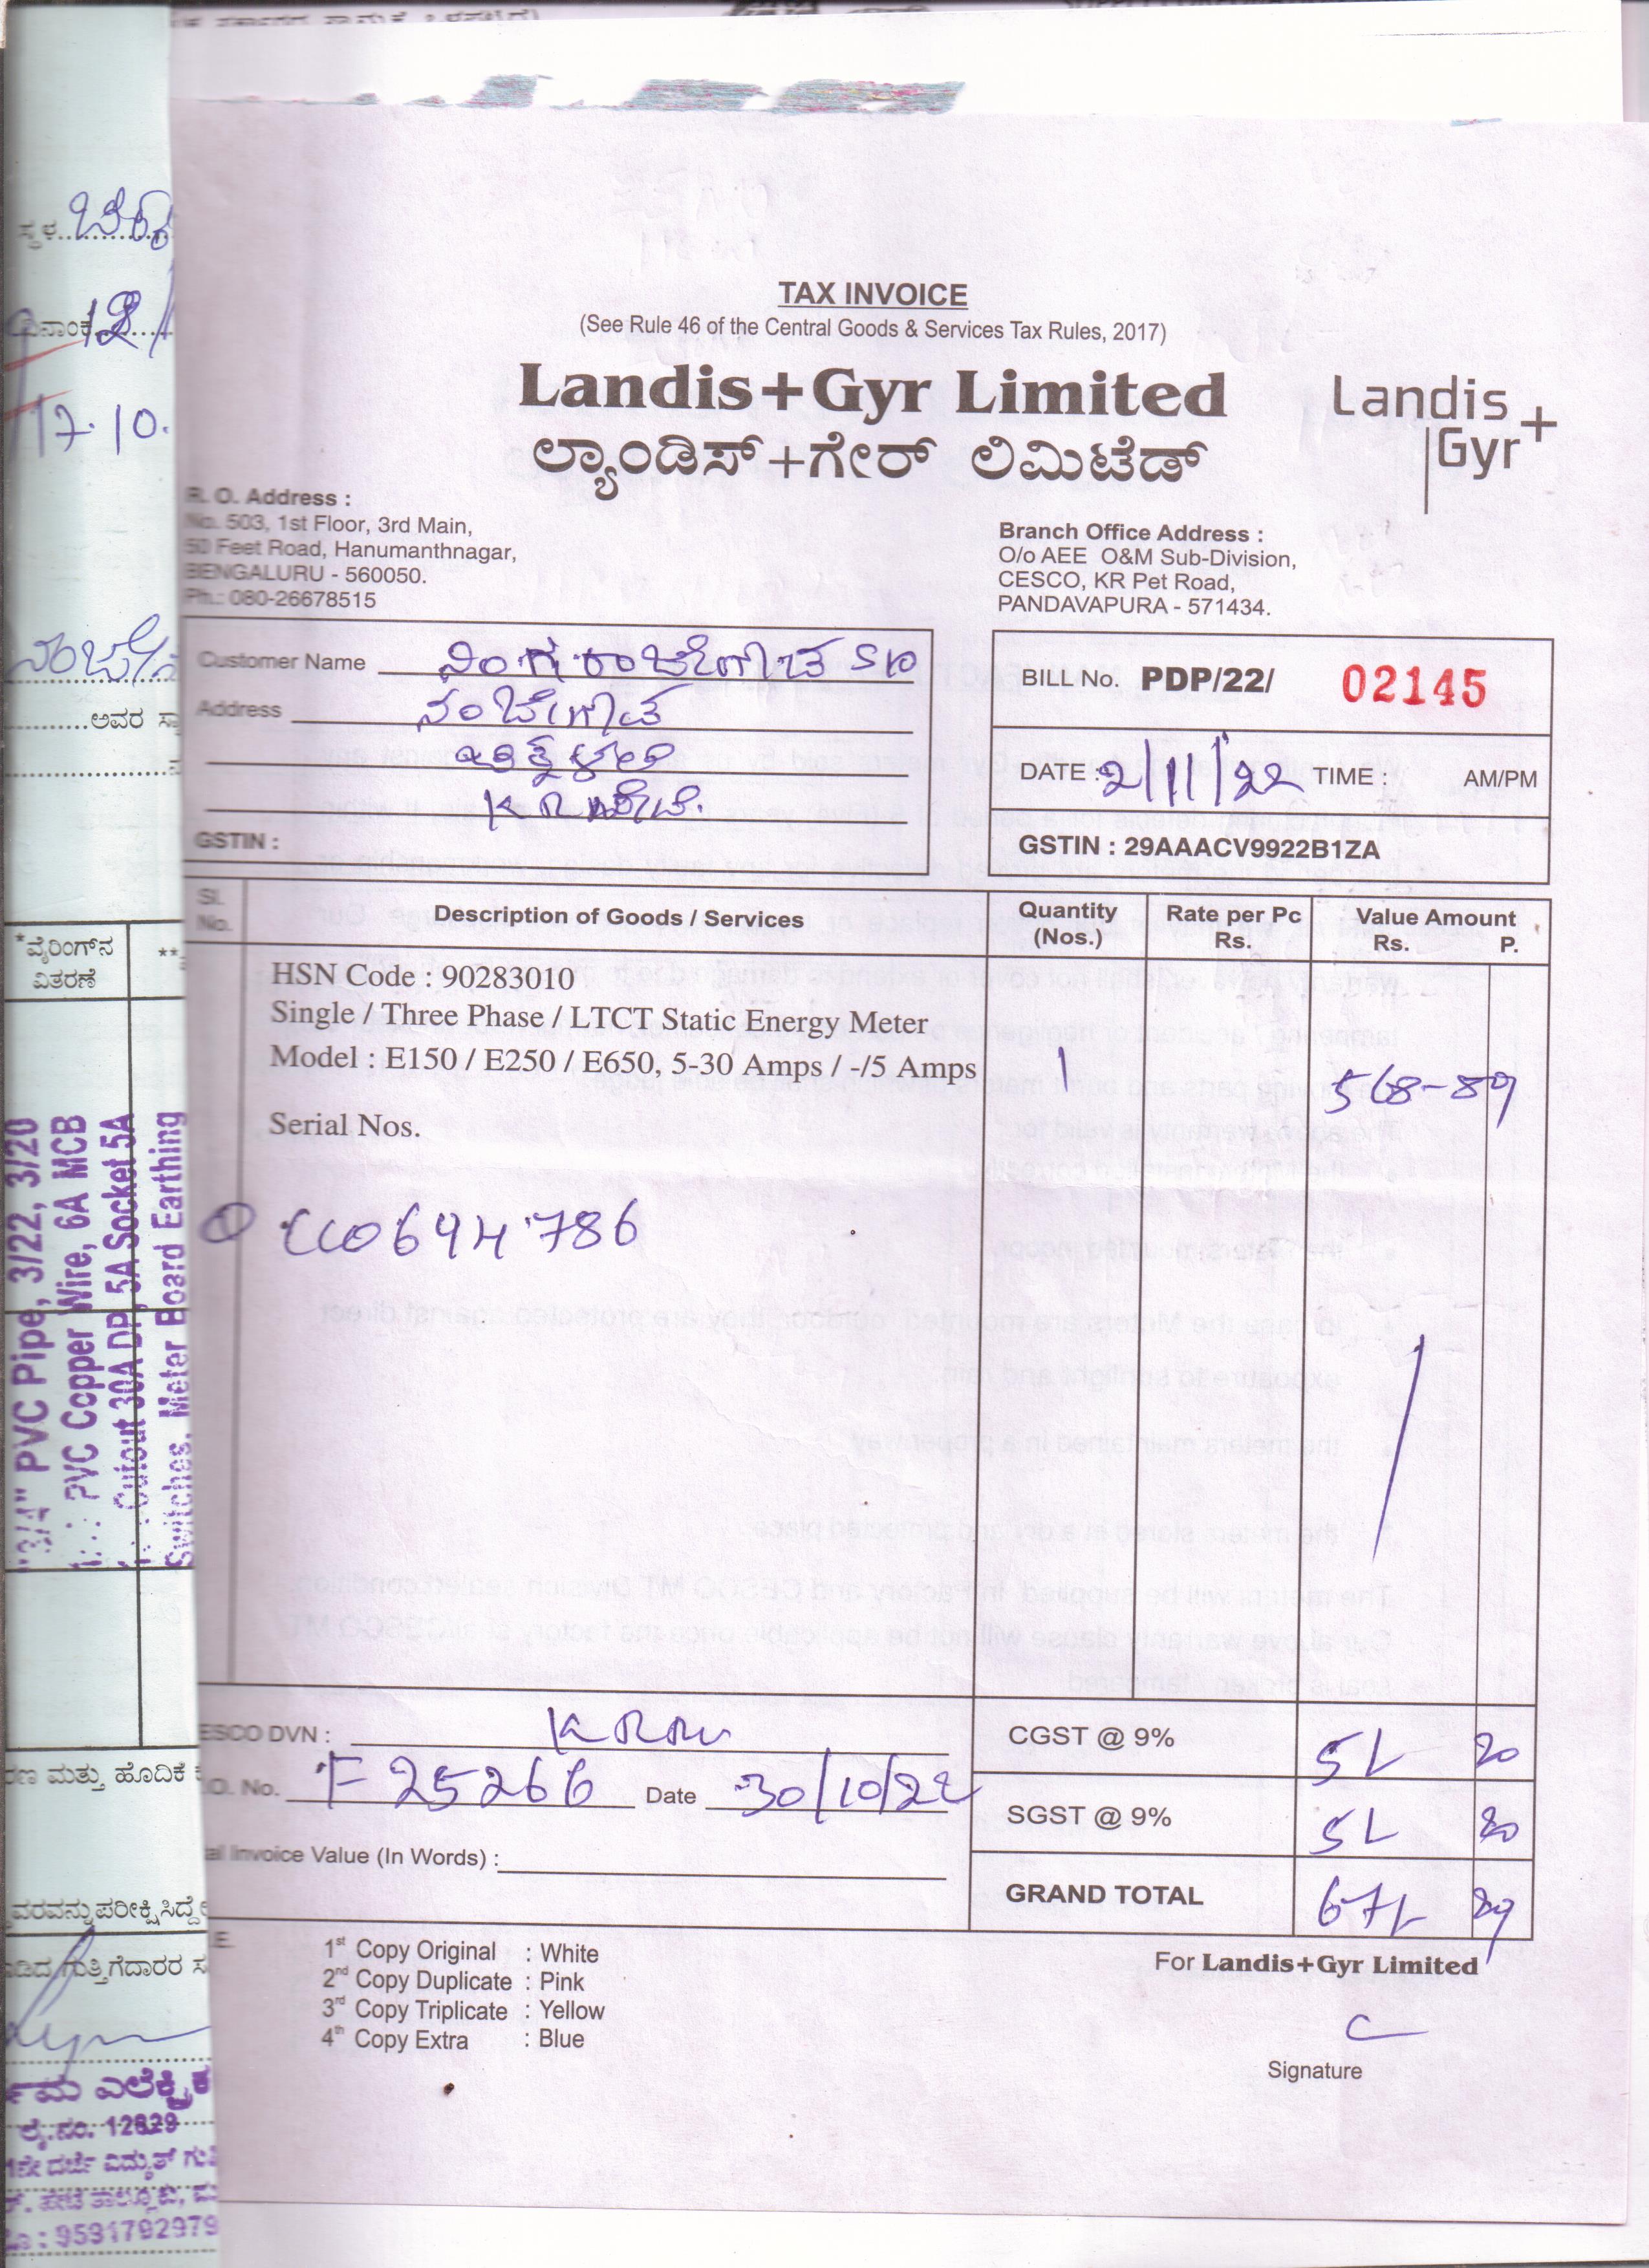 ಸ್ಥಳ
17.10.
ಅವರ
*ವೈರಿಂಗ್‌ನ
ವಿತರಣೆ
**
3/4" PVC Pipe, 3/22, 3/20
PVC Copper Wire, 6A MCB
Cutout 30A DP, 5A Socket 5A
Switches, Meter Board Earthing
ಮತ್ತು ಹೊದಿಕೆ
ಗುತ್ತಿಗೆದಾರರ
ಲೈ.ನಂ. 12829
: 9591792979
TAX INVOICE
(See Rule 46 of the Central Goods & Services Tax Rules, 2017)
Landis+Gyr Limited
Landis+
Gyr
ಲ್ಯಾಂಡಿಸ್+ಗೇರ್ ಲಿಮಿಟೆಡ್
R. O. Address :
No. 503, 1st Floor, 3rd Main,
50 Feet Road, Hanumanthnagar,
BENGALURU - 560050.
Ph.: 080-26678515
Branch Office Address :
O/o AEE O&M Sub-Division,
CESCO, KR Pet Road,
PANDAVAPURA - 571434.
Customer Name S/o
Address ನಂಜೇಗೌಡ
KR ಪೇಟೆ.
GSTIN :
BILL No. PDP/22/ 02145
DATE : 2/11/22 TIME : AM/PM
GSTIN : 29AAACV9922B1ZA
Sl. No. Description of Goods / Services Quantity (Nos.) Rate per Pc Rs. Value Amount Rs. P.
HSN Code : 90283010
Single / Three Phase / LTCT Static Energy Meter
Model : E150 / E250 / E650, 5-30 Amps / -/5 Amps 1 568-89
Serial Nos.
0694786
ESCO DVN :
.O. No. F 25266 Date 30/10/22
Invoice Value (In Words) :
CGST @ 9% 51 20
SGST @ 9% 51 20
GRAND TOTAL 671 89
1st Copy Original : White
2nd Copy Duplicate : Pink
3rd Copy Triplicate : Yellow
4th Copy Extra : Blue
For Landis+Gyr Limited
Signature